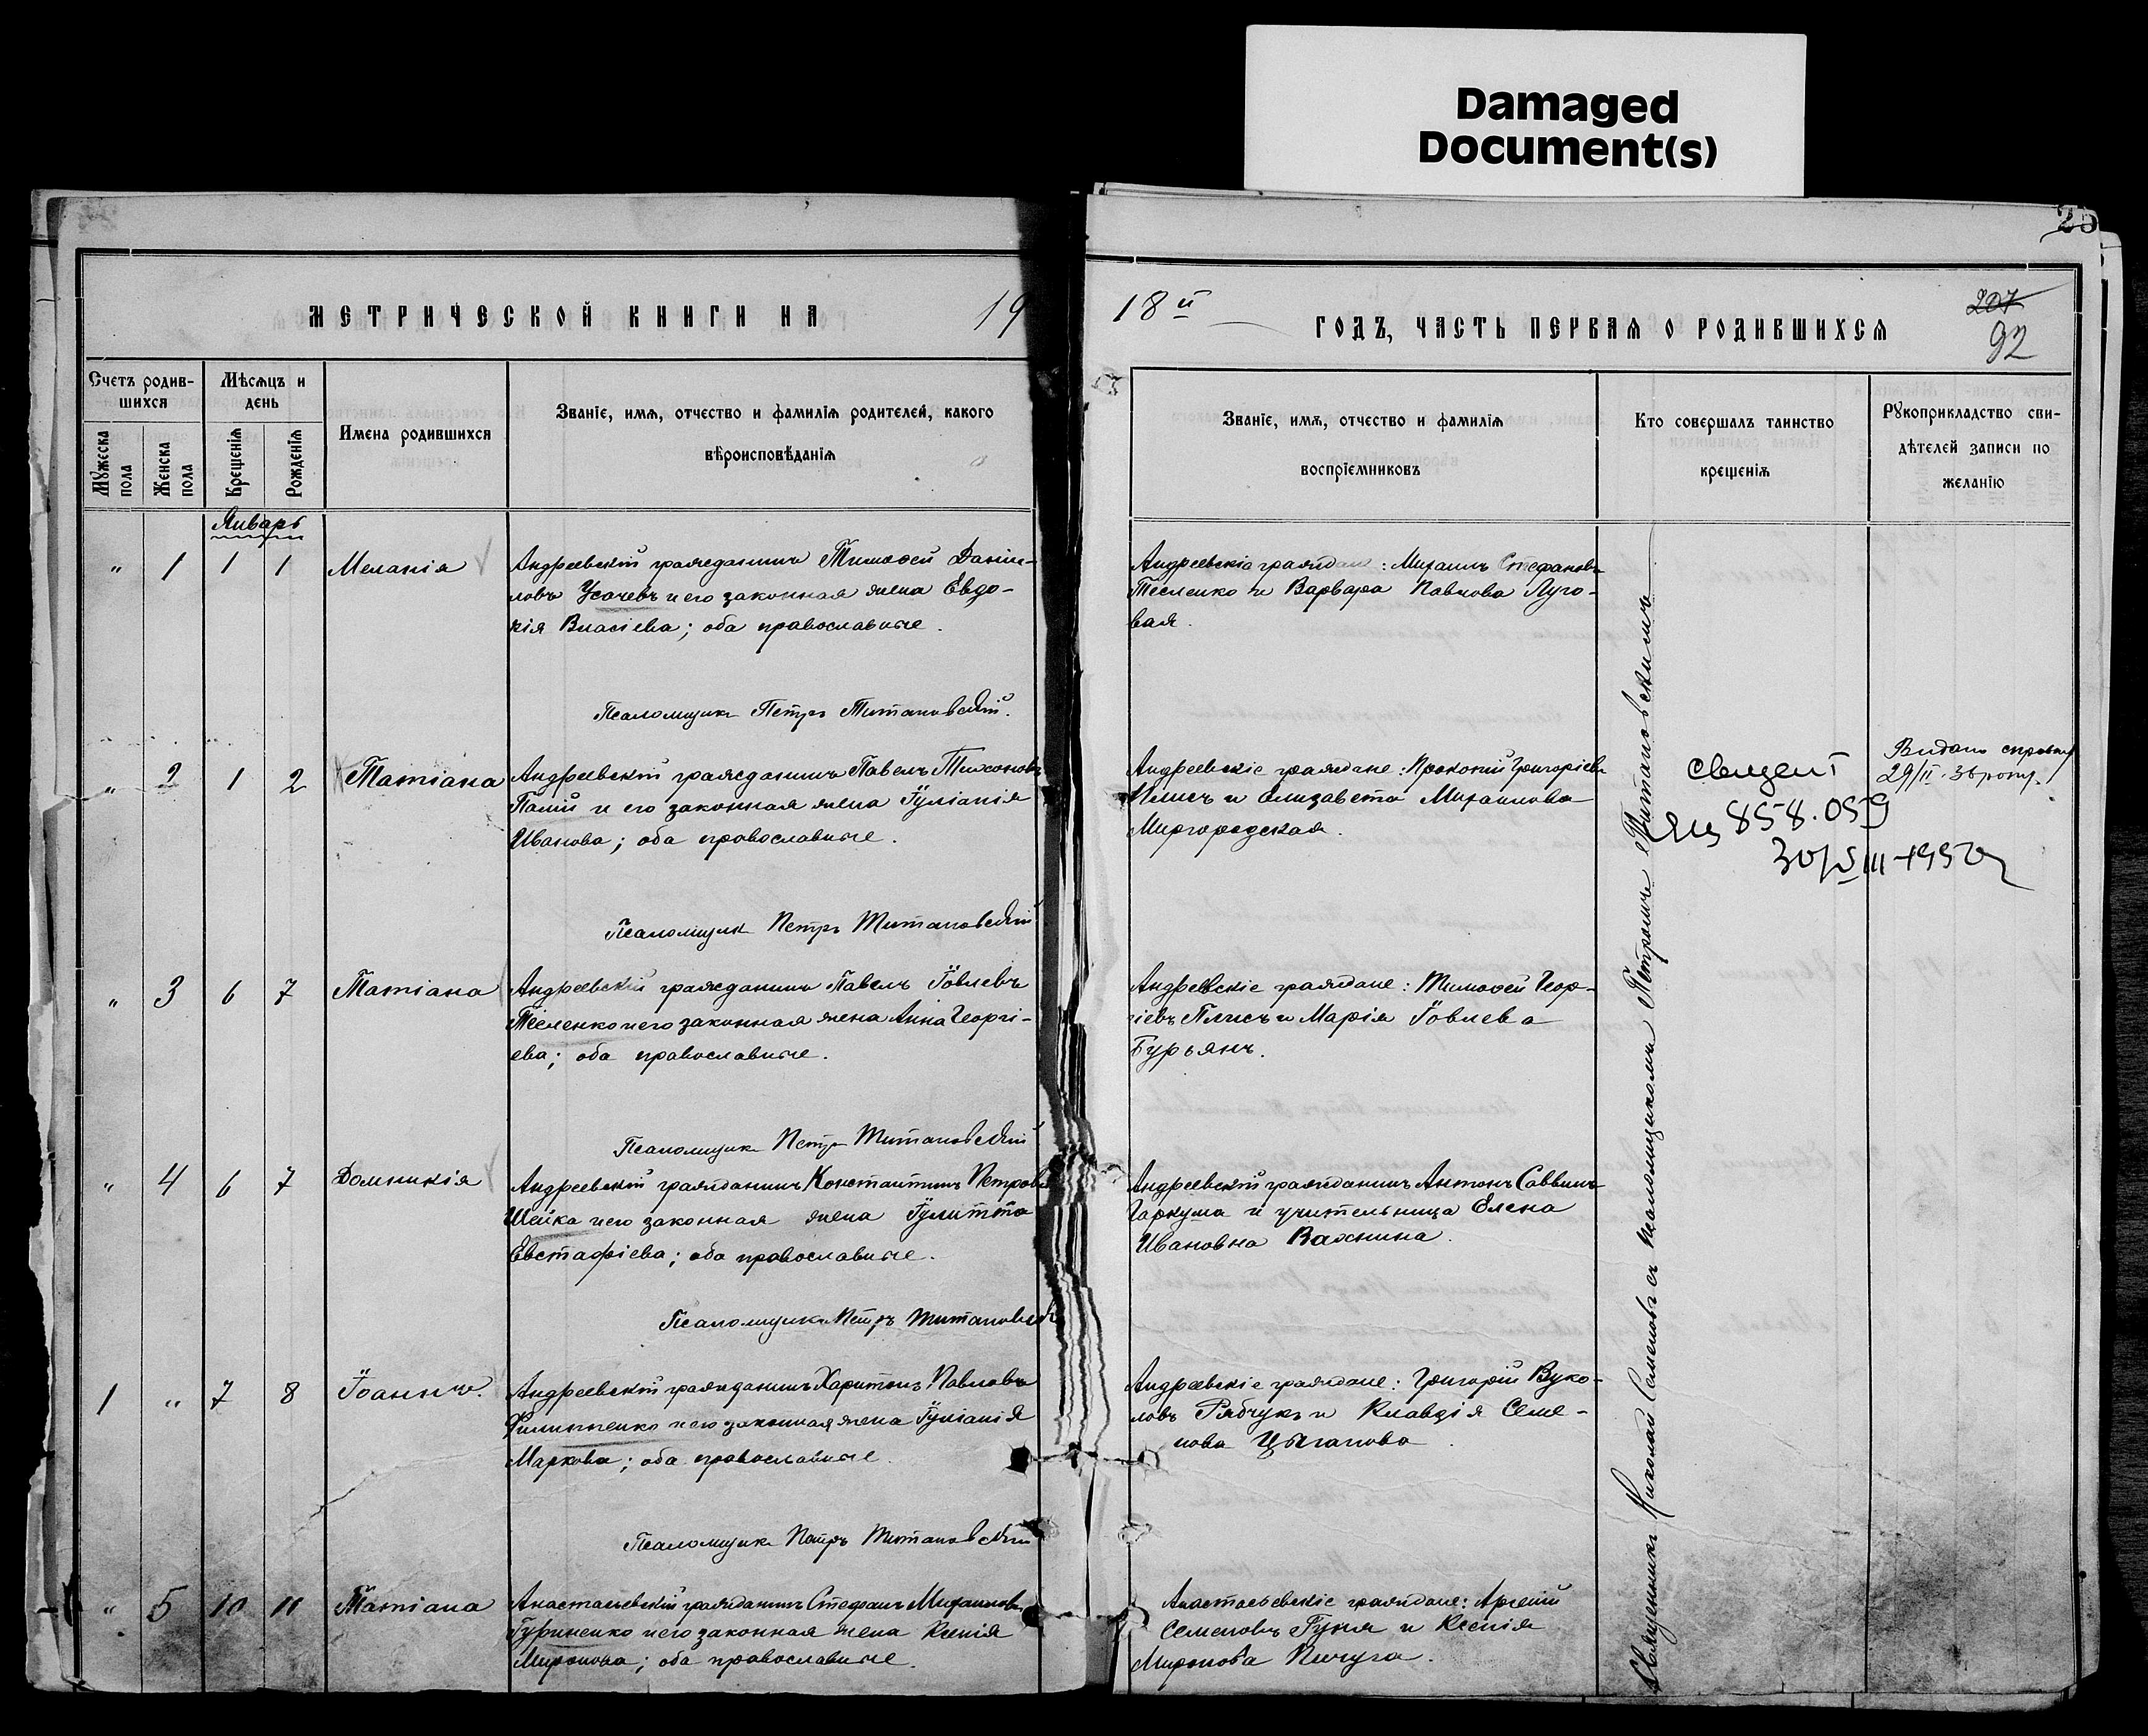 Damaged
Document(s)
25
МЕТРИЧЕСКОЙ КНИГИ НА 19
18й ГОДЪ, ЧАСТЬ ПЕРВАЯ О РОДИВШИХСЯ
207
92
Счетъ родив-
шихся
Мужеска
пола
Женска
пола
Мѣсяцъ и
день
Крещенія
Рожденія
Имена родившихся
Званіе, имя, отчество и фамилія родителей, какого
вѣроисповѣданія
Званіе, имя, отчество и фамилія
воспріемниковъ
Кто совершалъ таинство
крещенія
Рукоприкладство сви-
дѣтелей записи по
желанію
Январь
" 1 1 1 Меланія
Андреевскій гражданинъ Тимофей Данiи-
ловъ Усачевъ и его законная жена Евдо-
кія Власіева; оба православные.
Псаломщикъ Петръ Титановскій.
Андреевскіе граждане: Михаилъ Стефановъ
Тесленко и Варвара Павлова Луго-
вая.
" 2 1 2 Татіана
Андреевскій гражданинъ Павелъ Тихоновъ
Палій и его законная жена Іуліанія
Иванова; оба православные.
Псаломщикъ Петръ Титановскій
Андреевскіе граждане: Прокопій Григоріевъ
Плисъ и Елизавета Михаилова
Миргородская.
858.059
Видано справку
29/II.36 року.
" 3 6 7 Татіана
Андреевскій гражданинъ Павелъ Іовлевъ
Тесленко и его законная жена Анна Георгі-
ева; оба православные.
Псаломщикъ Петръ Титановскій
Андреевскіе граждане: Тимофей Геор-
гіевъ Плисъ и Марія Іовлева
Бурьянъ.
" 4 6 7 Домникія
Андреевскій гражданинъ Константинъ Петровъ
Шейка и его законная жена Іулитта
Евстафіева; оба православные.
Псаломщикъ Петръ Титановскій
Андреевскій гражданинъ Антонъ Саввинъ
Гаркума и учительница Елена
Ивановна Вахнина.
1 " 7 8 Іоаннъ.
Андреевскій гражданинъ Харитонъ Павловъ
Филиппенко и его законная жена Іуліанія
Маркова; оба православные.
Псаломщикъ Петръ Титановскій
Андреевскіе граждане: Григорій Вуко-
ловъ Рябчукъ и Клавдія Семе-
нова Цыганова
" 5 10 11 Татіана
Анастасьевскій гражданинъ Стефанъ Михаиловъ
Гуриненко и его законная жена Ксенія
Миронова; оба православные.
Анастасьевскіе граждане: Арсеній
Семеновъ Гуня и Ксенія
Миронова Пичуга.
Священникъ Николай Семеновъ съ псаломщикомъ Петромъ Титановскимъ